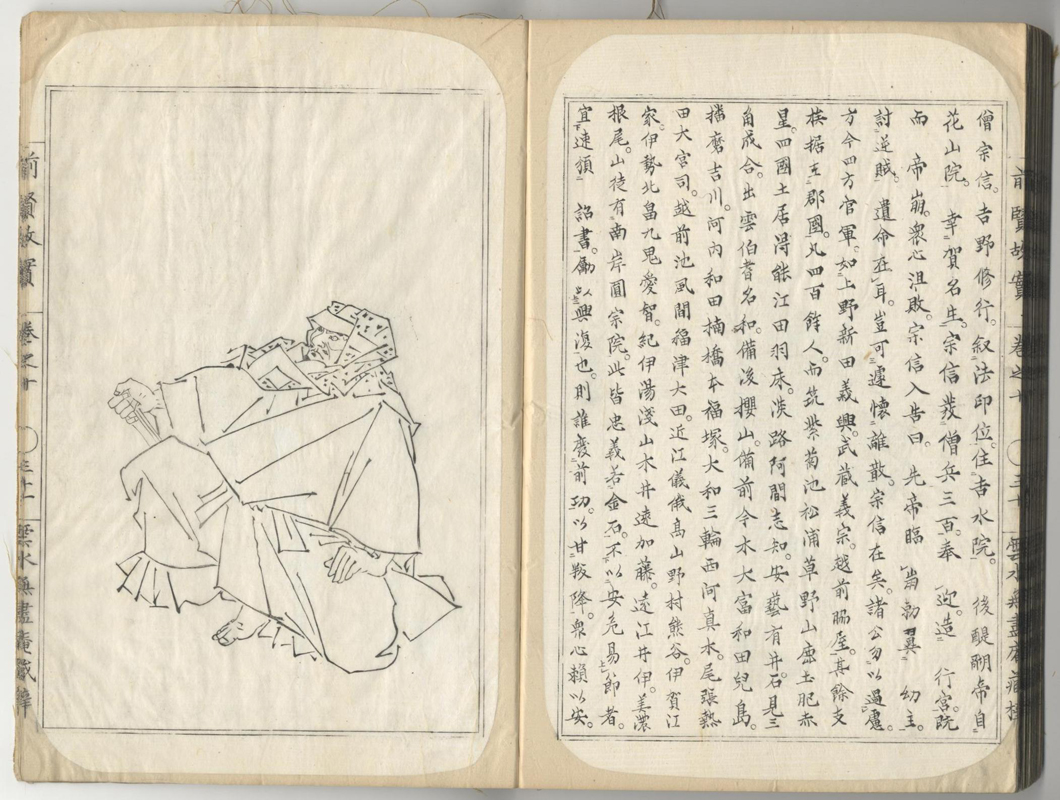 前賢故實 卷之十 三十 雲水無盡庵藏梓
僧宗信。吉野修行。叙法印位。住吉水院。 後醍醐帝自
花山院。 幸賀名生。宗信發僧兵三百。奉 迎造 行宮。既
而 帝崩。衆心沮敗。宗信入告曰。先帝臨崩勅翼 幼主。
討逆賊。 遺命在耳。豈可遽懷離散。宗信在矣。諸公勿以過慮。
方今四方官軍。如上野新田義興。武藏義宗。越前脇屋。其餘支
族據五郡國。凡四百餘人。而筑紫菊池松浦草野山鹿土肥赤
星。四國土居得能江田羽床。淡路阿間志知。安藝有井。石見三
角成合。出雲伯耆名和。備後櫻山。備前今木大富和田兒島。
播磨吉川。河内和田楠橋本福塚。大和三輪西河真木。尾張熱
田大宮司。越前池風間福津大田。近江儀俄高山野村熊谷。伊賀江
家。伊勢北畠九鬼愛智。紀伊湯淺山木井遠加藤。遠江井伊。美濃
根尾。山徒有南岸圓宗院。此皆忠義若金石。不以安危易節者。
宜速須 詔書。勵以興復也。則誰廢前功。以甘叛降。衆心賴以安。
前賢故實 卷之十 三十一 雲水無盡庵藏梓